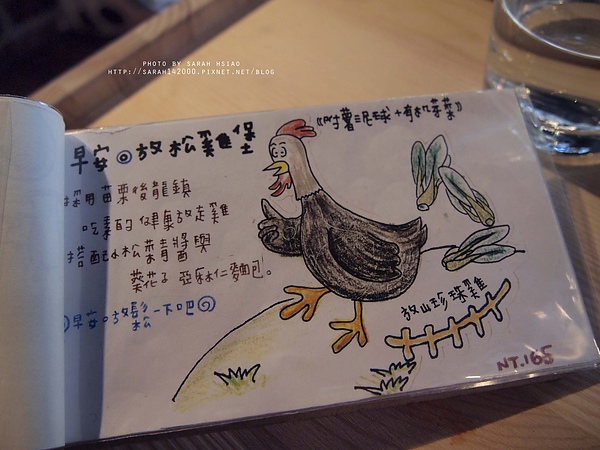 PHOTO BY SARAH HSIAO
HTTP://SARAH142000.PIXNET.NET/BLOG
早安。放松雞堡
《附薯泥球+有机芽菜》
採用苗栗後龍鎮
吃素的健康放走雞
搭配小松菜青醬與
葵花子亞麻仁麵包。
早安。放鬆一下吧
松
放山珍珠雞
NT.165